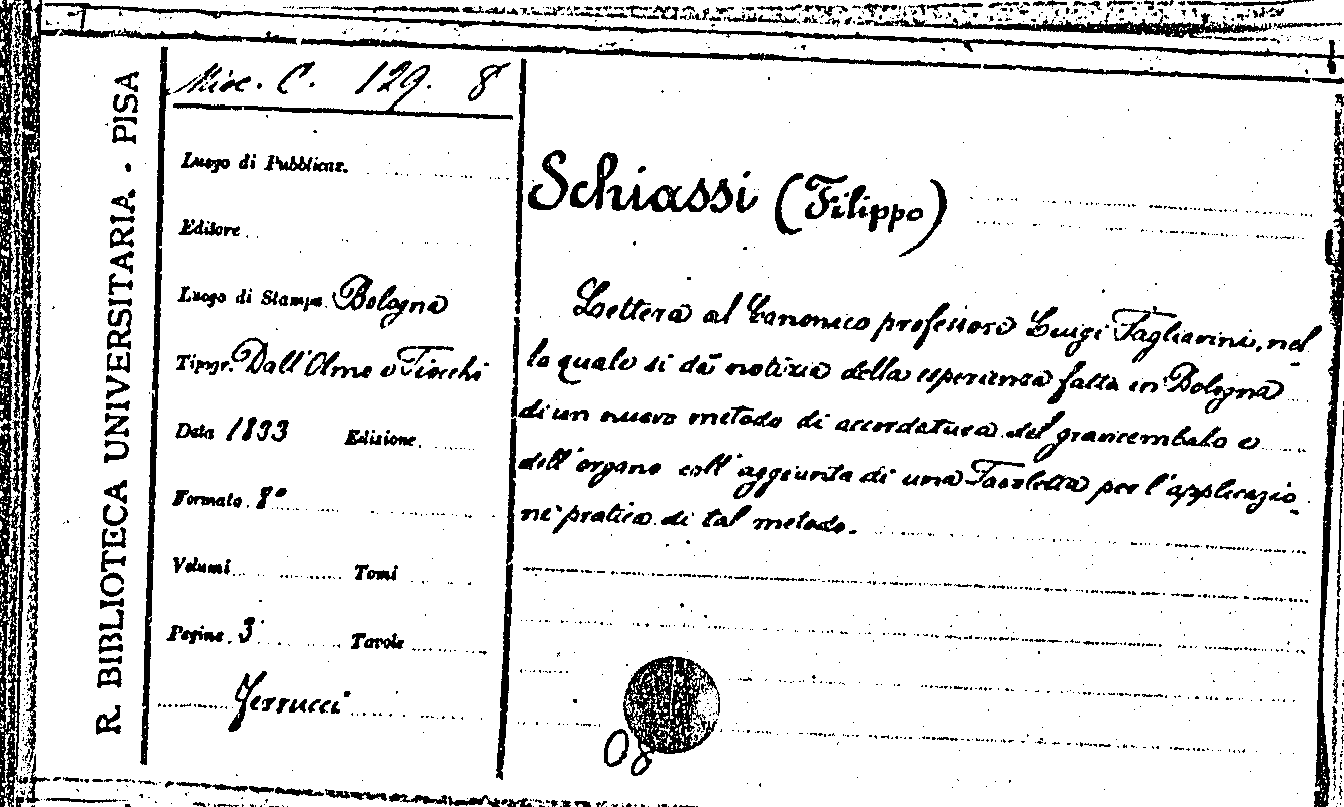 R. BIBLIOTECA UNIVERSITARIA - PISA
Misc. C. 129. 8
Luogo di Pubblicaz.
Editore
Luogo di Stampa Bologna
Tipogr. Dall'Olmo e Tiocchi
Data 1833 Edizione
Formato 8°
Volumi Tomi
Pagine 3 Tavole
Ferrucci
Schiassi (Filippo)
Lettera al Canonico professore Luigi Tagliavini, nel-
la quale si dà notizia della esperienza fatta in Bologna
di un nuovo metodo di accordatura del gravicembalo e
dell'organo coll'aggiunta di una Tavoletta per l'applicazio-
ne pratica di tal metodo.
08